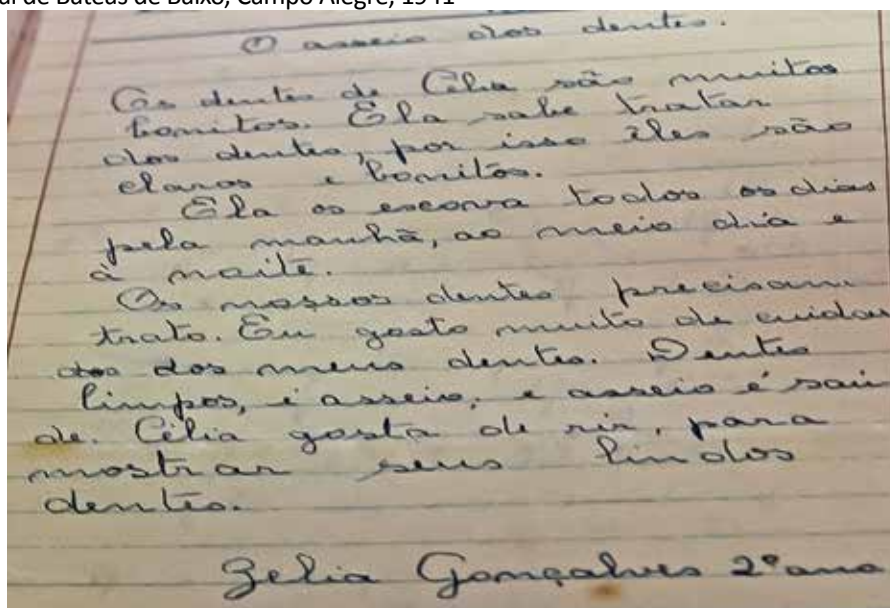 al de Bateas de Baixo, Campo Alegre, 1941
O asseio dos dentes.
Os dentes de Célia são muitos
bonitos. Ela sabe tratar
dos dentes, por isso êles são
claros e bonitos.
Ela os escova todos os dias
pela manhã, ao meio dia e
à noite.
Os nossos dentes precisam
trato. Eu gosto muito de cuidar
dos dos meus dentes. Dentes
limpos, é asseio, e asseio é saú
de. Célia gosta de rir, para
mostrar seus lindos
dentes.
Zelia Gonçalves 2º ano